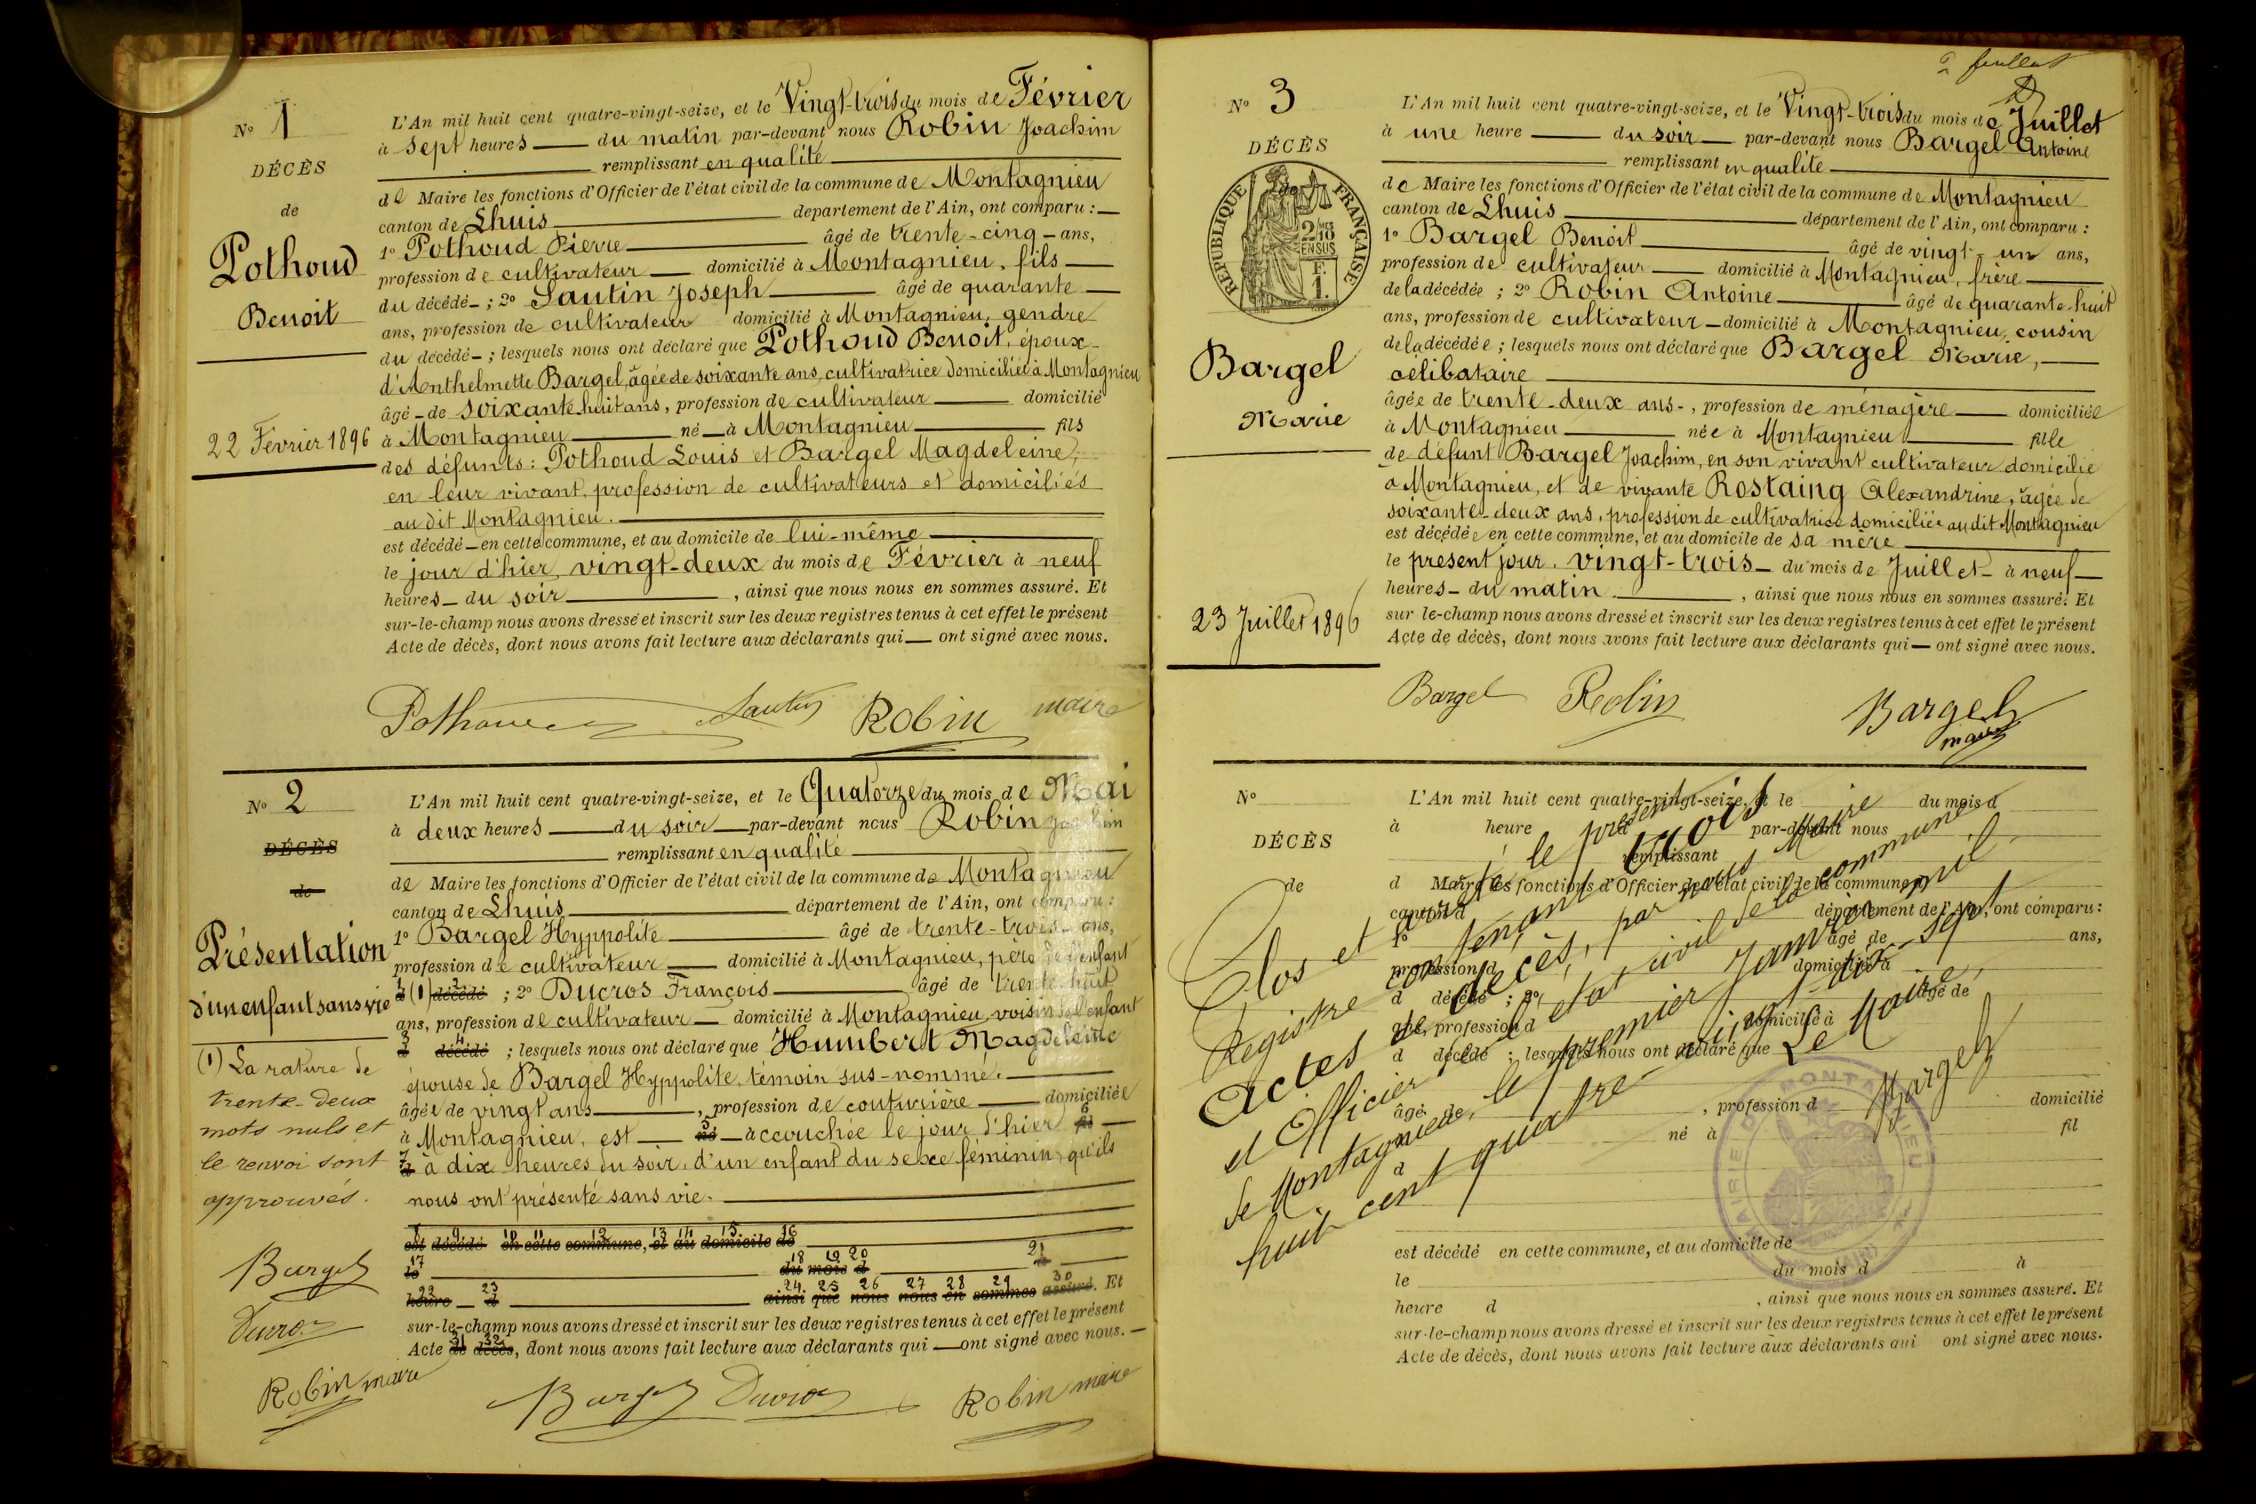 N° 1
DÉCÈS
de
Pothoud
Benoit
22 Février 1896
L'An mil huit cent quatre-vingt-seize, et le Vingt-trois du mois de Février
à sept heures du matin par-devant nous Robin Joachim
remplissant en qualité
de Maire les fonctions d'Officier de l'état civil de la commune de Montagnieu
canton de Lhuis département de l'Ain, ont comparu :
1° Pothoud Pierre âgé de trente-cinq ans,
profession de cultivateur domicilié à Montagnieu, fils
du décédé ; 2° Sautin Joseph âgé de quarante
ans, profession de cultivateur domicilié à Montagnieu, gendre
du décédé ; lesquels nous ont déclaré que Pothoud Benoit, époux
d'Anthelmette Bargel, âgée de soixante ans, cultivatrice domiciliée à Montagnieu
âgé de soixante-huit ans, profession de cultivateur domicilié
à Montagnieu né à Montagnieu fils
des défunts : Pothoud Louis et Bargel Magdeleine,
en leur vivant, profession de cultivateurs et domiciliés
au dit Montagnieu.
est décédé en cette commune, et au domicile de lui-même
le jour d'hier, vingt-deux du mois de Février à neuf
heures du soir, ainsi que nous nous en sommes assuré. Et
sur-le-champ nous avons dressé et inscrit sur les deux registres tenus à cet effet le présent
Acte de décès, dont nous avons fait lecture aux déclarants qui ont signé avec nous.
Pothoud Sautin Robin maire
N° 2
DÉCÈS
de
Présentation
d'un enfant sans vie
(1) La rature de
trente-deux
mots nuls et
le renvoi sont
approuvés.
Bargel
Ducros
Robin maire
L'An mil huit cent quatre-vingt-seize, et le Quatorze du mois de Mai
à deux heures du soir par-devant nous Robin Joachim
remplissant en qualité
de Maire les fonctions d'Officier de l'état civil de la commune de Montagnieu
canton de Lhuis département de l'Ain, ont comparu :
1° Bargel Hyppolite âgé de trente-trois ans,
profession de cultivateur domicilié à Montagnieu, père de l'enfant
1 d (1) 2 décédé ; 2° Ducros François âgé de trente-huit
ans, profession de cultivateur domicilié à Montagnieu, voisin de l'enfant
3 d 4 décédé ; lesquels nous ont déclaré que Humbert Magdeleine
épouse de Bargel Hyppolite, témoin sus-nommé,
âgée de vingt ans, profession de couturière domiciliée
à Montagnieu, est 5 né accouchée le jour d'hier 6 fil
7 d à dix heures du soir, d'un enfant du sexe féminin, qu'ils
nous ont présenté sans vie.
8 9 10 11 12 13 14 15 16
est décédé en cette commune, et au domicile de
17 18 19 20 21
le du mois d à
22 23 24 25 26 27 28 29 30
heure d ainsi que nous nous en sommes assuré. Et
sur-le-champ nous avons dressé et inscrit sur les deux registres tenus à cet effet le présent
31 32
Acte de décès, dont nous avons fait lecture aux déclarants qui ont signé avec nous.
Bargel Ducros Robin maire
2 feuillet
N° 3
DÉCÈS
de
RÉPUBLIQUE FRANÇAISE
2/10 EN SUS
F. 1.
Bargel
Marie
23 Juillet 1896
L'An mil huit cent quatre-vingt-seize, et le Vingt-trois du mois de Juillet
à une heure du soir par-devant nous Bargel Antoine
remplissant en qualité
de Maire les fonctions d'Officier de l'état civil de la commune de Montagnieu
canton de Lhuis département de l'Ain, ont comparu :
1° Bargel Benoit âgé de vingt-un ans,
profession de cultivateur domicilié à Montagnieu, frère
de la décédée ; 2° Robin Antoine âgé de quarante-huit
ans, profession de cultivateur domicilié à Montagnieu, cousin
de la décédée ; lesquels nous ont déclaré que Bargel Marie,
célibataire
âgée de trente-deux ans, profession de ménagère domiciliée
à Montagnieu née à Montagnieu fille
de défunt Bargel Joachim, en son vivant cultivateur domicilié
à Montagnieu, et de vivante Rostaing Alexandrine, âgée de
soixante-deux ans, profession de cultivatrice domiciliée au dit Montagnieu
est décédée en cette commune, et au domicile de sa mère
le présent jour, vingt-trois du mois de Juillet à neuf
heures du matin, ainsi que nous nous en sommes assuré. Et
sur-le-champ nous avons dressé et inscrit sur les deux registres tenus à cet effet le présent
Acte de décès, dont nous avons fait lecture aux déclarants qui ont signé avec nous.
Bargel Robin Bargel maire
N°
DÉCÈS
de
L'An mil huit cent quatre-vingt-seize, et le du mois d
à heure par-devant nous
remplissant
d Maire les fonctions d'Officier de l'état civil de la commune d
canton d département de l'Ain, ont comparu :
1° âgé de ans,
profession d domicilié à
d décédé ; 2° âgé de
ans, profession d domicilié à
d décédé ; lesquels nous ont déclaré que
âgé de, profession d domicilié
à né à fil
d
est décédé en cette commune, et au domicile de
le du mois d à
heure d, ainsi que nous nous en sommes assuré. Et
sur-le-champ nous avons dressé et inscrit sur les deux registres tenus à cet effet le présent
Acte de décès, dont nous avons fait lecture aux déclarants qui ont signé avec nous.
Clos et arrêté le présent
Registre contenant trois
Actes de décès, par nous Maire
et Officier de l'état civil de la commune
de Montagnieu, le premier Janvier mil
huit cent quatre-vingt-dix-sept
Le Maire,
Bargel
MAIRIE DE MONTAGNIEU (AIN)